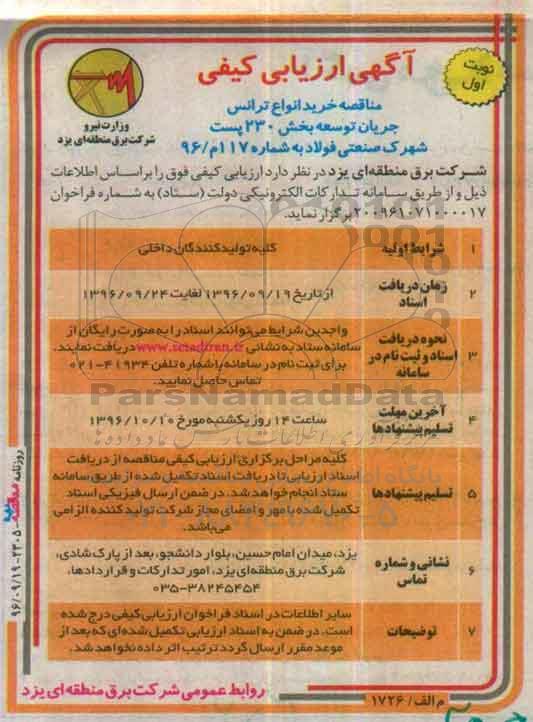 آگهی ارزیابی کیفی
نوبت
اول
مناقصه خرید انواع ترانس
جریان توسعه بخش ۲۳۰ پست
شهرک صنعتی فولاد به شماره ۱۱۷م/۹۶
وزارت نیرو
شرکت برق منطقه‌ای یزد
شرکت برق منطقه‌ای یزد در نظر دارد ارزیابی کیفی فوق را براساس اطلاعات
ذیل و از طریق سامانه تدارکات الکترونیکی دولت (ستاد) به شماره فراخوان
۲۰۰۹۶۱۰۷۱۰۰۰۰۱۷ برگزار نماید.
۱ شرایط اولیه کلیه تولیدکنندگان داخلی
۲ زمان دریافت
اسناد
از تاریخ ۱۳۹۶/۰۹/۱۹ لغایت ۱۳۹۶/۰۹/۲۴
۳ نحوه دریافت
اسناد و ثبت نام در
سامانه
واجدین شرایط می‌توانند اسناد را به صورت رایگان از
سامانه ستاد به نشانی www.setadiran.ir دریافت نمایند.
برای ثبت نام در سامانه با شماره تلفن ۴۱۹۳۴-۰۲۱
تماس حاصل نمایید.
۴ آخرین مهلت
تسلیم پیشنهادها
ساعت ۱۴ روز یکشنبه مورخ ۱۳۹۶/۱۰/۱۰
۵ تسلیم پیشنهادها
کلیه مراحل برگزاری ارزیابی کیفی مناقصه از دریافت
اسناد ارزیابی تا دریافت اسناد تکمیل شده از طریق سامانه
ستاد انجام خواهد شد. در ضمن ارسال فیزیکی اسناد
تکمیل شده با مهر و امضای مجاز شرکت تولید کننده الزامی
می‌باشد.
۶ نشانی و شماره
تماس
یزد، میدان امام حسین، بلوار دانشجو، بعد از پارک شادی،
شرکت برق منطقه‌ای یزد، امور تدارکات و قراردادها،
۰۳۵-۳۸۲۴۵۴۵۴
۷ توضیحات
سایر اطلاعات در اسناد فراخوان ارزیابی کیفی درج شده
است. در ضمن به اسناد ارزیابی تکمیل شده‌ای که بعد از
موعد مقرر ارسال گردد ترتیب اثر داده نخواهد شد.
روابط عمومی شرکت برق منطقه‌ای یزد
م الف/۱۷۲۶
روزنامه مناقصه - ۲۳۰۵ - ۹۶/۰۹/۱۹
ParsNamadData